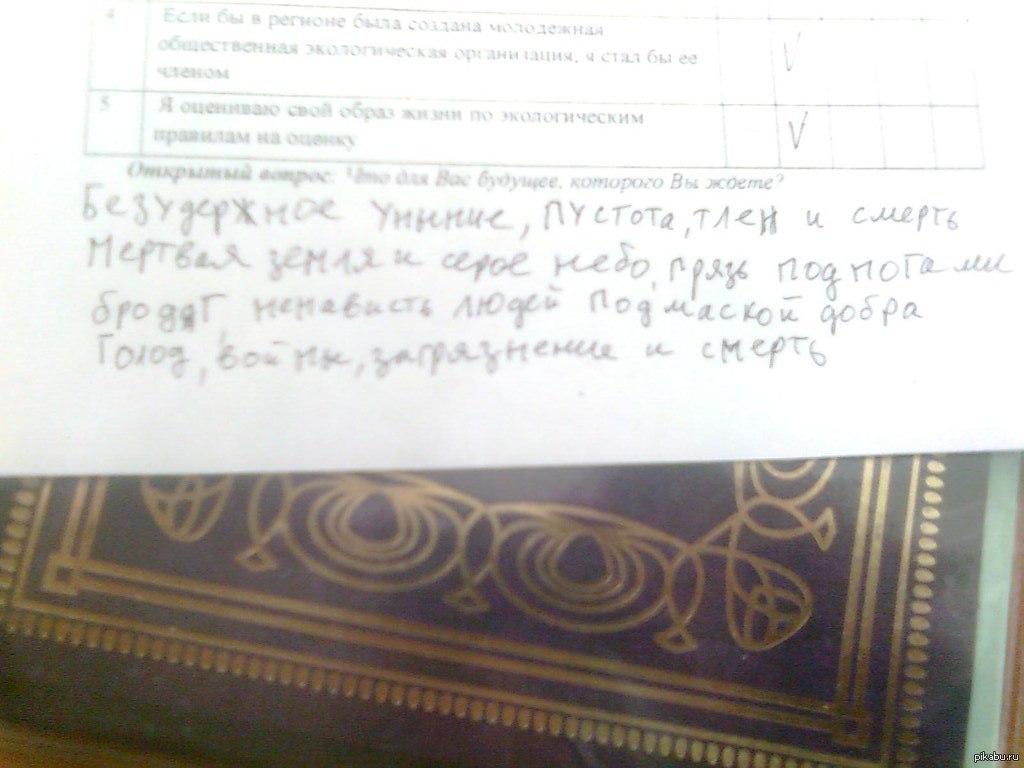 4 Если бы в регионе была создана молодежная
общественная экологическая организация, я стал бы ее
членом
V
5 Я оцениваю свой образ жизни по экологическим
правилам на оценку
V
Открытый вопрос: Что для Вас будущее, которого Вы ждете?
Безудержное уныние, пустота, тлен и смерть
Мертвая земля и серое небо, грязь под ногами
бродяг, ненависть людей под маской добра
Голод, войны, загрязнение и смерть
pikabu.ru